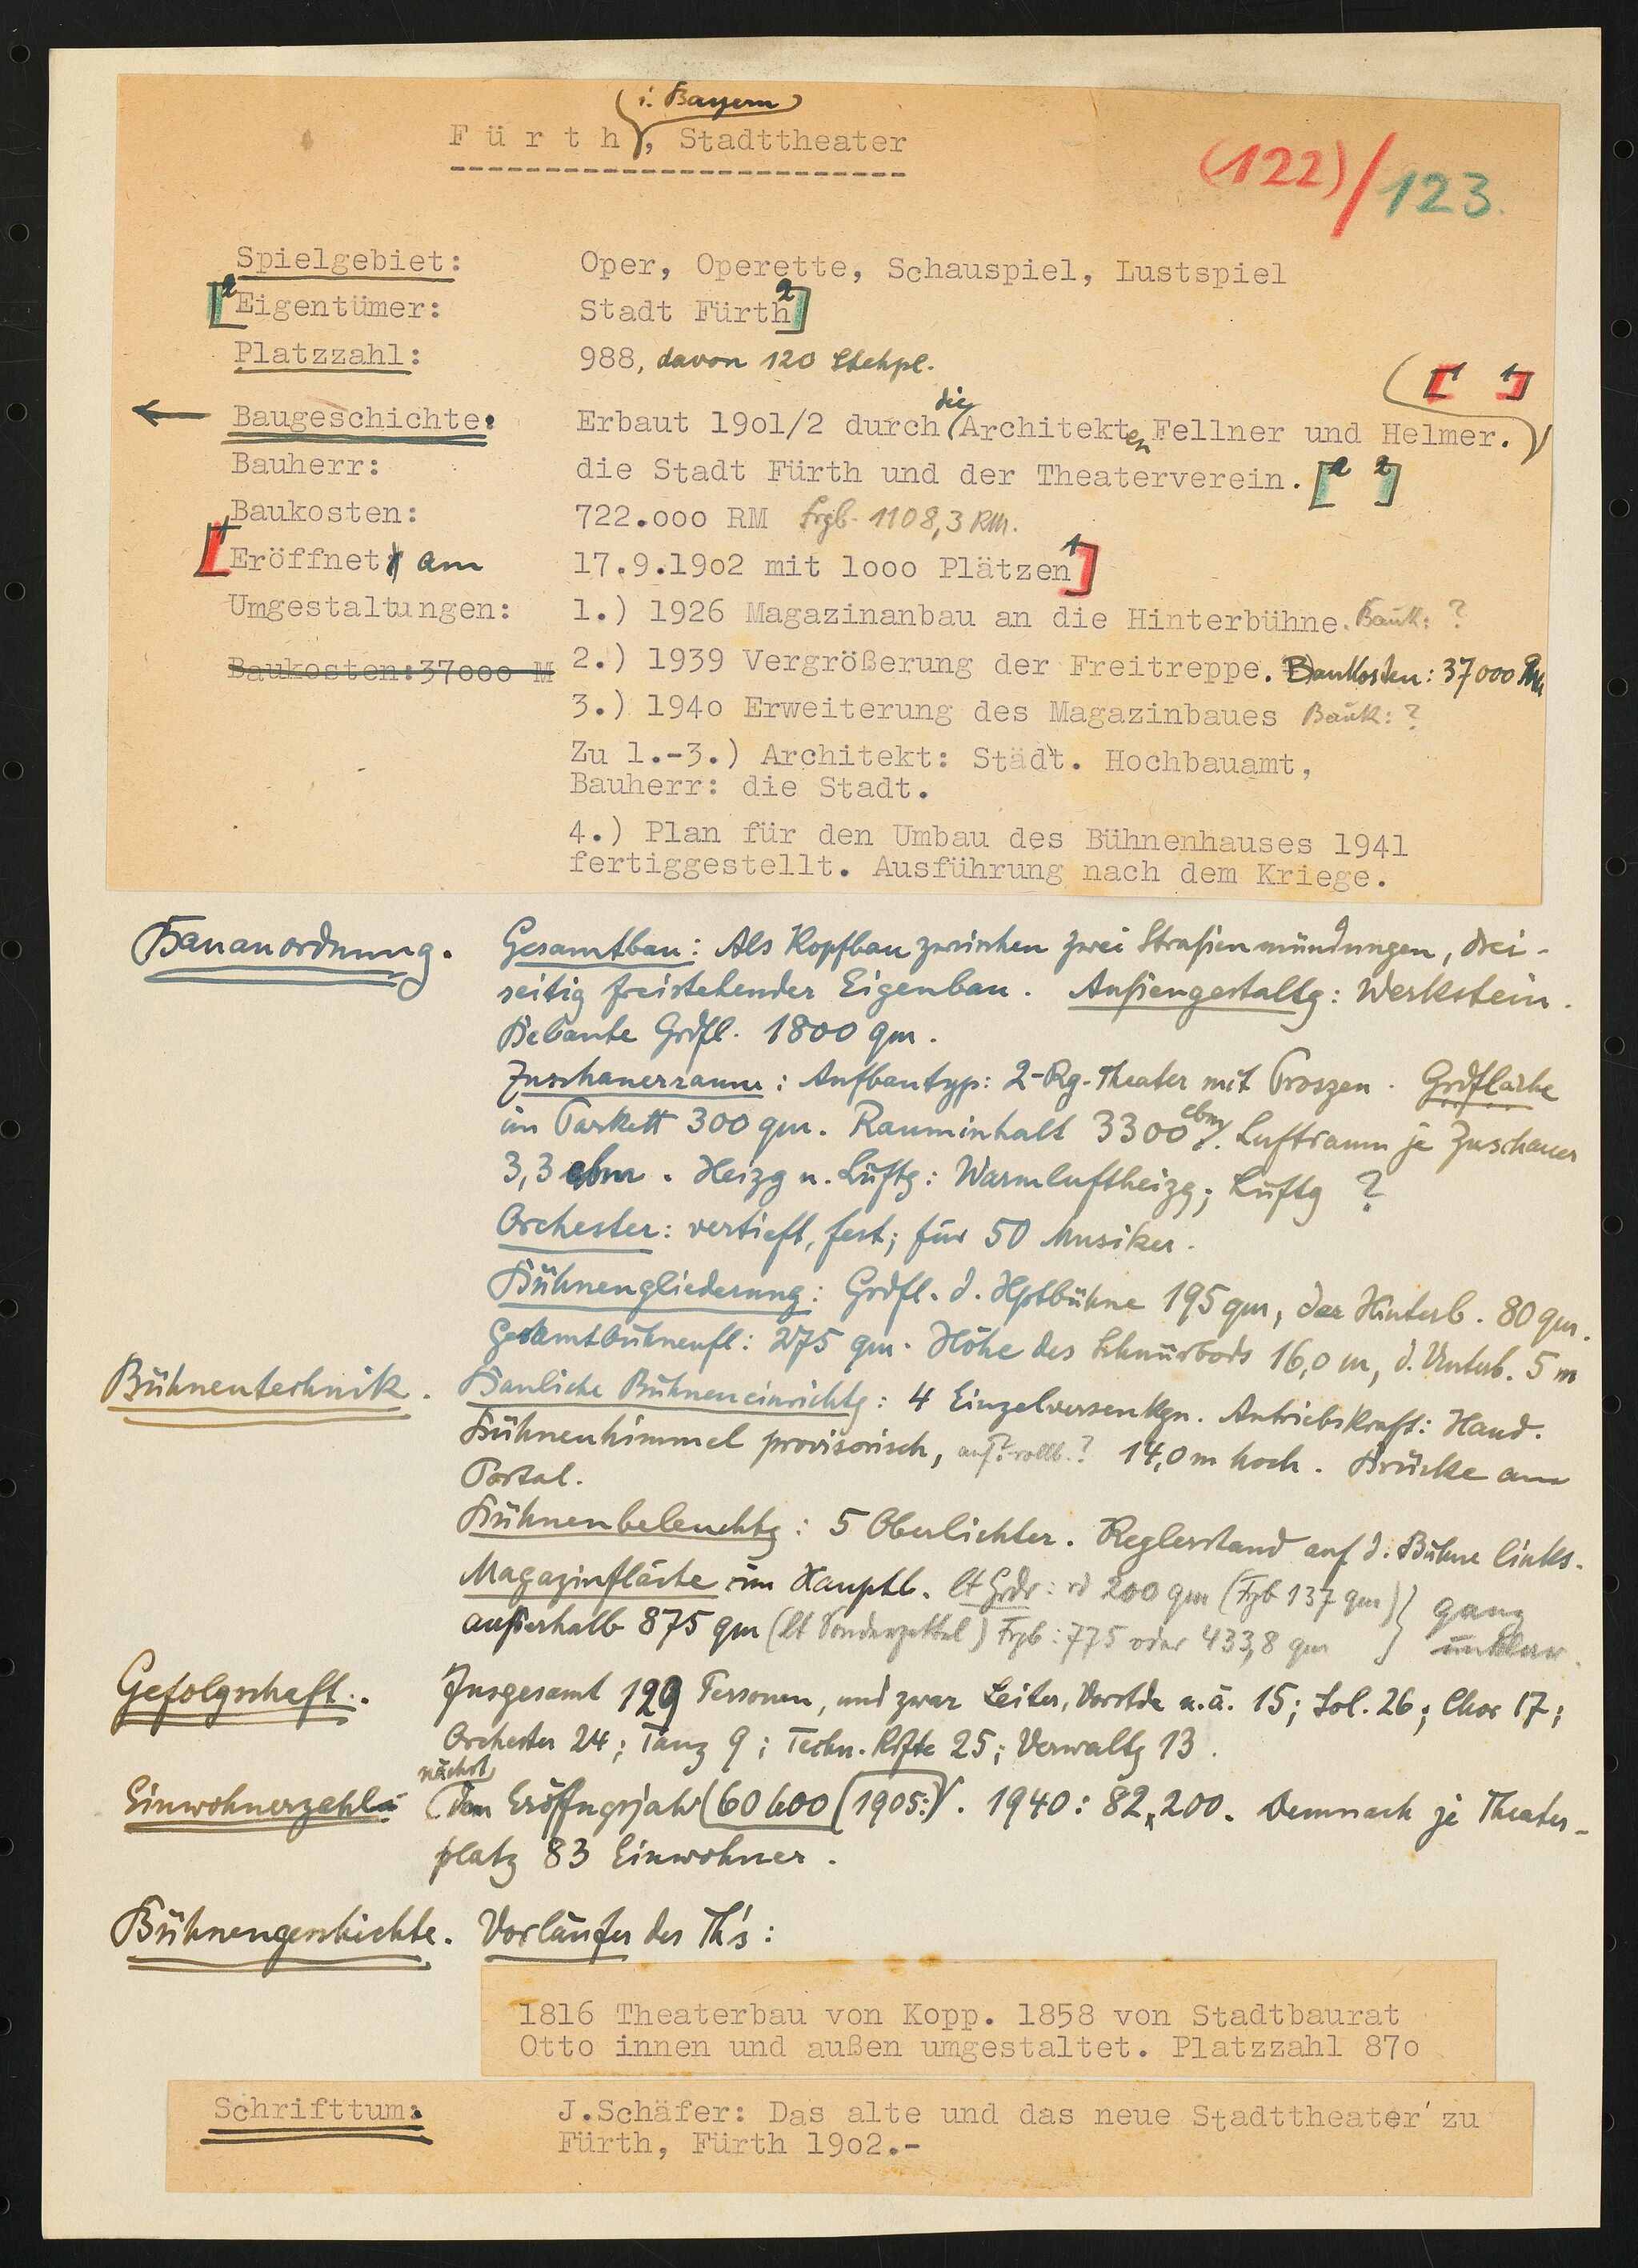 (i. Bayern)
Fürth, Stadttheater
(122)/123.
Spielgebiet: Oper, Operette, Schauspiel, Lustspiel
[2 Eigentümer: Stadt Fürth 2]
Platzzahl: 988, davon 120 Stehpl.
[1 1]
← Baugeschichte: Erbaut 19o1/2 durch die Architekten Fellner und Helmer.
Bauherr: die Stadt Fürth und der Theaterverein. [2 2]
Baukosten: 722.ooo RM Frgb. 1108,3 RM.
[1 Eröffnet am 17.9.19o2 mit looo Plätzen 1]
Umgestaltungen: 1.) 1926 Magazinanbau an die Hinterbühne. Bauk: ?
Baukosten:37ooo M 2.) 1939 Vergrößerung der Freitreppe. Baukosten: 37000 RM
3.) 194o Erweiterung des Magazinbaues Bauk: ?
Zu 1.-3.) Architekt: Städt. Hochbauamt,
Bauherr: die Stadt.
4.) Plan für den Umbau des Bühnenhauses 1941
fertiggestellt. Ausführung nach dem Kriege.
Bauanordnung. Gesamtbau: Als Kopfbau zwischen zwei Straßenmündungen, drei-
seitig freistehender Eigenbau. Außengestaltg: Werkstein.
Bebaute Grdfl. 1800 qm.
Zuschauerraum: Aufbautyp: 2-Rg-Theater mit Proszen. Grdfläche
im Parkett 300 qm. Rauminhalt 3300 cbm. Luftraum je Zuschauer
3,3 cbm. Heizg u. Lüftg: Warmluftheizg; Lüftg ?
Orchester: vertieft, fest; für 50 Musiker.
Bühnengliederung: Grdfl. d. Hptbühne 195 qm, der Hinterb. 80 qm.
Gesamtbühnenfl: 275 qm. Höhe des Schnürbods 16,0 m, d. Unterb. 5 m
Bühnentechnik. Bauliche Bühneneinrichtg: 4 Einzelversenkgn. Antriebskraft: Hand.
Bühnenhimmel provisorisch, aufrollb.? 14,0 m hoch. Brücke am
Portal.
Bühnenbeleuchtg: 5 Oberlichter. Reglerstand auf d. Bühne links.
Magazinfläche im Hauptb. lt Grdr: rd 200 qm (Frgb 137 qm) } ganz
außerhalb 875 qm (lt Sonderzettel) Frgb: 775 oder 433,8 qm } unklar.
Gefolgschaft. Insgesamt 129 Personen, und zwar Leiter, Vorstde u.ä. 15; Sol. 26; Chor 17;
Orchester 24; Tanz 9; Techn. Kräfte 25; Verwaltg 13.
nächst
Einwohnerzahl: dem Eröffngsjahr (60600 (1905:). 1940: 82,200. Demnach je Theater-
platz 83 Einwohner.
Bühnengeschichte. Vorläufer des Th's:
1816 Theaterbau von Kopp. 1858 von Stadtbaurat
Otto innen und außen umgestaltet. Platzzahl 87o
Schrifttum: J.Schäfer: Das alte und das neue Stadttheater zu
Fürth, Fürth 19o2.-